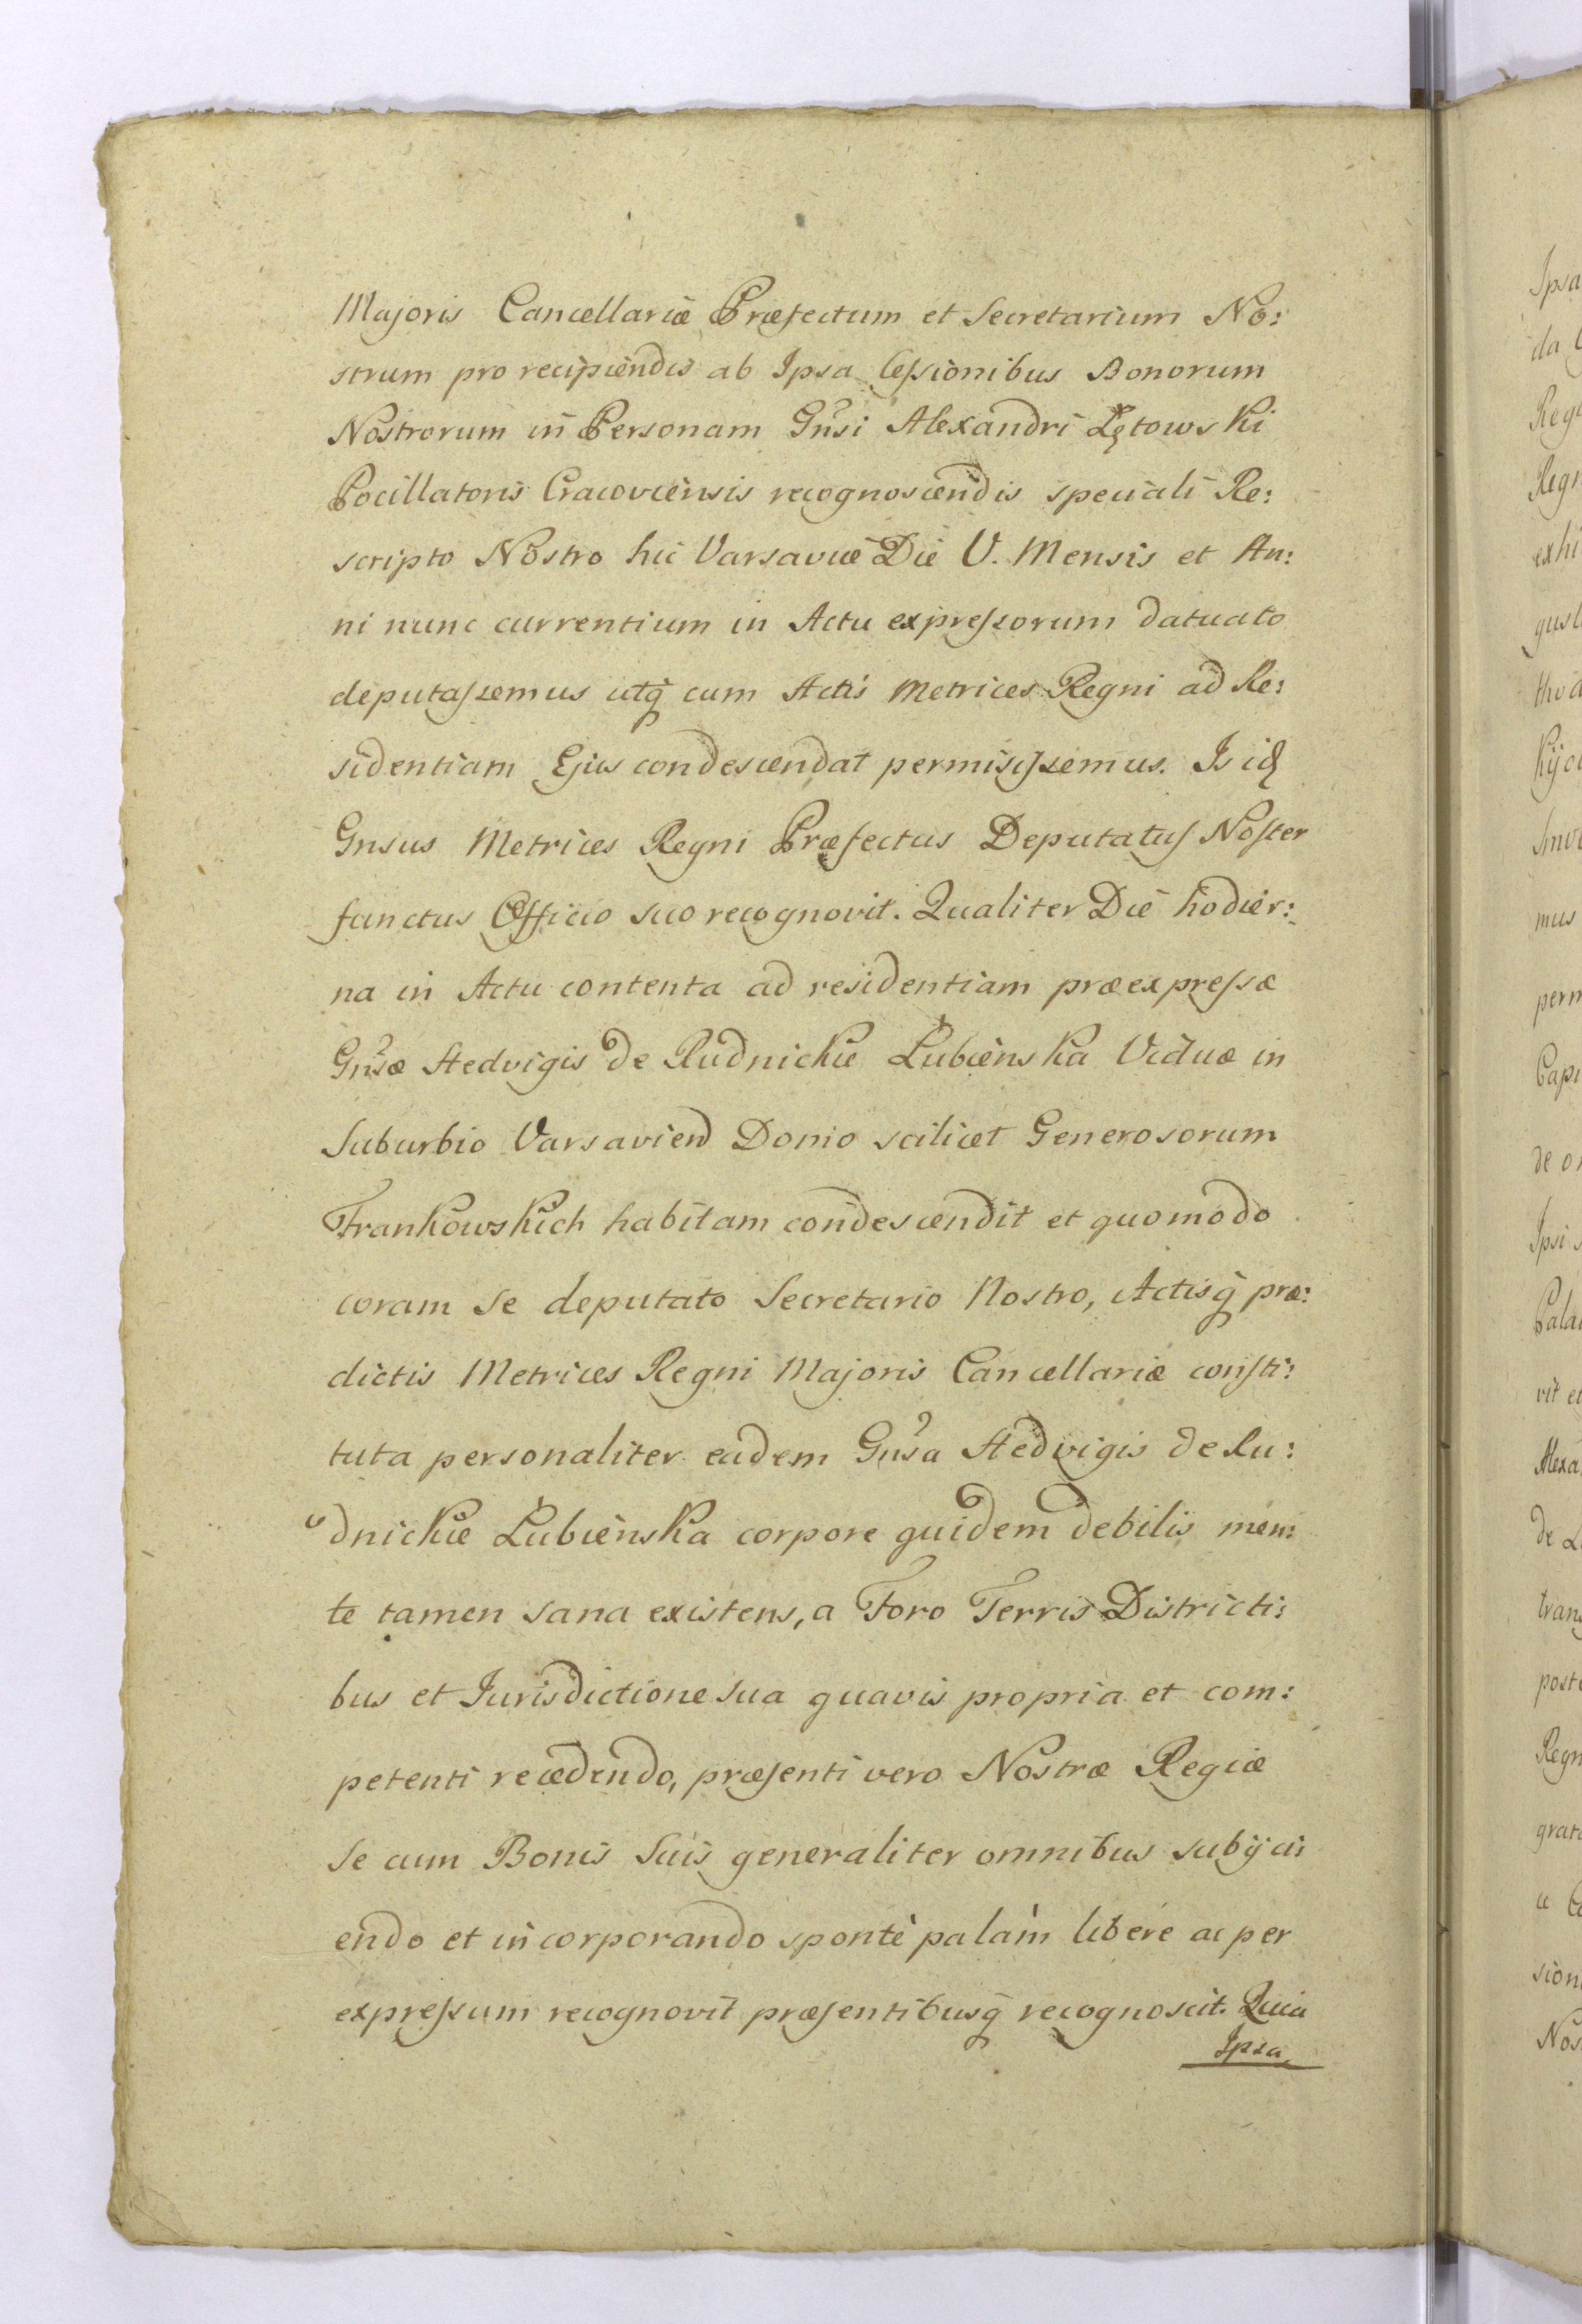 Majoris Cancellariæ Præfectum et Secretarium No:
strum pro recipiendis ab Ipsa Cessionibus Bonorum
Nostrorum in Personam Gnsi Alexandri Łętowski
Pocillatoris Cracoviensis recognoscendis speciali Re:
scripto Nostro hic Varsaviæ Die V. Mensis et An:
ni nunc currentium in Actu expressorum datuato
deputassemus utq cum Actis Metrices Regni ad Re:
sidentiam Ejus condescendat permisissemus. Is idq
Gnsus Metrices Regni Præfectus Deputatus Noster
functus Officio suo recognovit. Qualiter Die hodier:
na in Actu contenta ad residentiam præexpressæ
Gnsæ Hedvigis de Rudnickie Łubienska Viduæ in
Suburbio Varsavien Domo scilicet Generosorum
Frankowskich habitam condescendit et quomodo
coram se deputato Secretario Nostro, Actisq præ:
dictis Metrices Regni Majoris Cancellariæ consti:
tuta personaliter eadem Gnsa Hedvigis de Ru:
dnickie Łubienska corpore quidem debilis men:
te tamen sana existens, a Foro Terris Districti:
bus et Jurisdictione sua quavis propria et com:
petenti recedendo, præsenti vero Nostræ Regiæ
se cum Bonis suis generaliter omnibus subijci:
endo et incorporando sponte palam libere ac per
expressum recognovit præsentibusq recognoscit. Quia
Ipsa